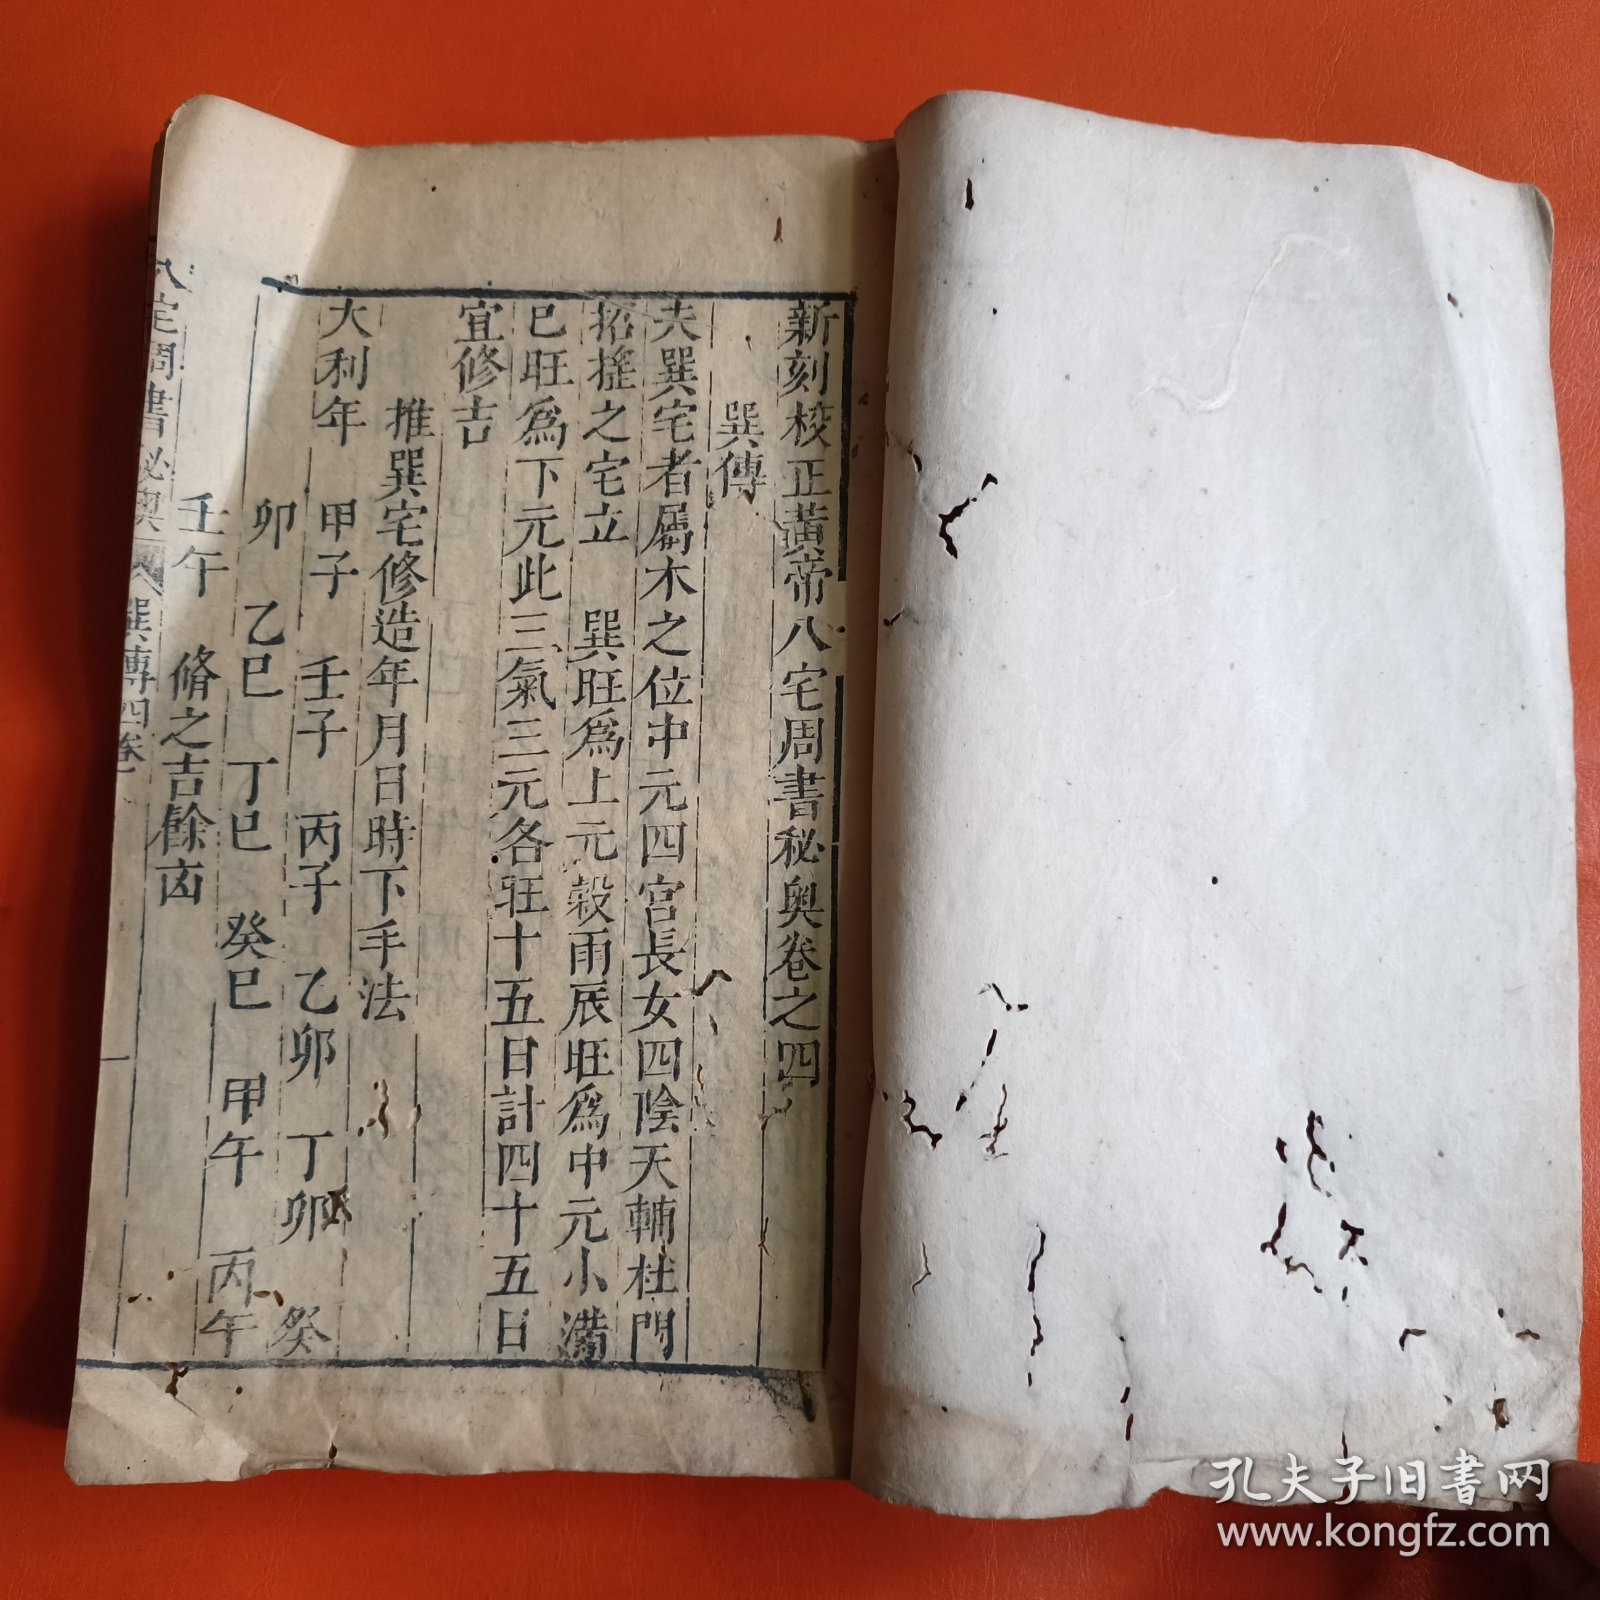 新刻校正黄帝八宅周書秘奥卷之四
巽傳
夫巽宅者屬木之位中元四宮長女四陰天輔杜門
招搖之宅立　巽旺爲上元穀雨辰旺爲中元小滿
巳旺爲下元此三氣三元各旺十五日計四十五日
宜修吉
推巽宅修造年月日時下手法
大利年　甲子　壬子　丙子　乙卯　丁卯　癸
卯　乙巳　丁巳　癸巳　甲午　丙午
壬午　脩之吉餘凶
八宅周書秘奥　巽傳四卷　一
孔夫子旧书网
www.kongfz.com